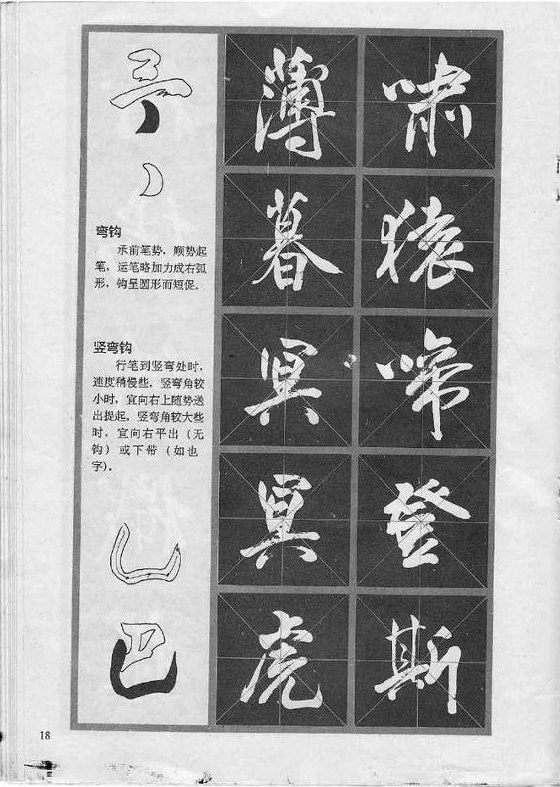 弯钩
承前笔势，顺势起
笔，运笔略加力成右弧
形，钩呈圆形而短促。
竖弯钩
行笔到竖弯处时，
速度稍慢些，竖弯角较
小时，宜向右上随势送
出提起，竖弯角较大些
时，宜向右平出（无
钩）或下带（如也
字）。
啸猿啼登斯
薄暮冥冥虎
18